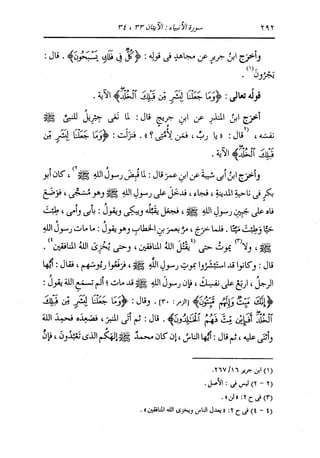 ٢٩٢ سورة الأنبياء : الآيتان ٣٣ ، ٣٤
وأخرَج ابنُ جريرٍ عن مجاهدٍ في قولِه : ﴿كُلٌّ فِي فَلَكٍ يَسْبَحُونَ﴾ . قال :
يَجْرُون(١) .
قولُه تعالى : ﴿وَمَا جَعَلْنَا لِبَشَرٍ مِّن قَبْلِكَ الْخُلْدَ﴾ الآية .
أخرَج ابنُ المنذرِ عن ابنِ جريجٍ قال : لما نَعَى جبريلُ للنبيِّ ﷺ
نفسَه ، (٢قال : « يا ربِّ ، فمَن لأُمَّتي ؟ » . فنزَلت : ﴿وَمَا جَعَلْنَا لِبَشَرٍ مِّن
قَبْلِكَ الْخُلْدَ﴾ الآية .
وأخرَج ابنُ أبي شيبةَ عن ابنِ عمرَ قال : لما قُبِض رسولُ اللهِ ﷺ٢) ، كان أبو
بكرٍ في ناحيةِ المدينةِ ، فجاء ، فدخَل على رسولِ اللهِ ﷺ وهو مُسَجًّى ، فوَضَع
فاه على جبينِ رسولِ اللهِ ﷺ ، فجعَل يُقَبِّلُه ويبكي ويقولُ : بأبي وأمي ، طِبْتَ
حيًّا وطِبْتَ ميِّتًا . فلما خرَج ، مرَّ بعمرَ بنِ الخطابِ وهو يقولُ : ما مات رسولُ اللهِ
ﷺ ، ولا(٣) يموتُ حتى (٤يَقْتُلَ اللهُ المنافقين ، وحتى يُخْزِيَ اللهُ المنافقين٤) .
قال : وكانوا قد استَبْشَروا بموتِ رسولِ اللهِ ﷺ ، فرَفَعوا رءُوسَهم ، فقال : أيُّها
الرجلُ ، ارْبَعْ على نفسِك ، فإن رسولَ اللهِ ﷺ قد مات ؛ ألم تسمَعِ اللهَ يقولُ :
﴿إِنَّكَ مَيِّتٌ وَإِنَّهُم مَّيِّتُونَ﴾ [الزمر : ٣٠] . وقال : ﴿وَمَا جَعَلْنَا لِبَشَرٍ مِّن قَبْلِكَ
الْخُلْدَ أَفَإِين مِّتَّ فَهُمُ الْخَالِدُونَ﴾ . قال : ثم أتى المنبرَ ، فصَعِده فحمِد اللهَ
وأثنى عليه ، ثم قال : أيُّها الناسُ ، إن كان محمدٌ ﷺ إلهَكم الذي تَعْبُدون ، فإن
(١) ابن جرير ١٦/ ٢٦٧.
(٢ - ٢) ليس في : الأصل .
(٣) في ح ٢ : « لن » .
(٤ - ٤) في ح ٢ : « الناس ويخزى الله المنافقين » .